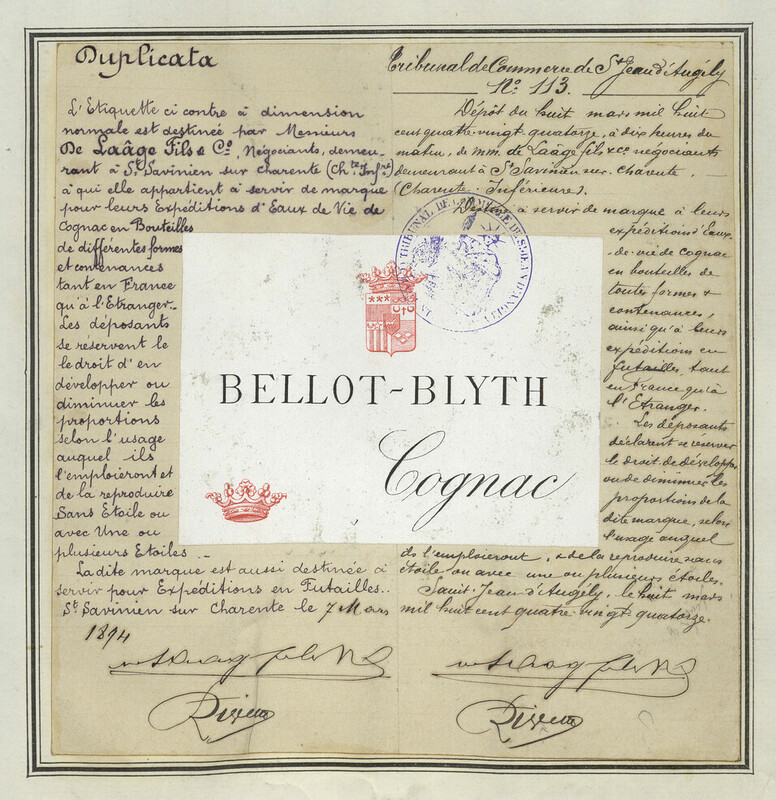 Duplicata
L'Etiquette ci contre à dimension
normale est destinée par Messieurs
De Laâge Fils & Cº, Négociants, demeu-
rant à St Savinien sur charente (Chte Infre)
à qui elle appartient à servir de marque
pour leurs Expéditions d'Eaux de Vie de
Cognac en Bouteilles
de différentes formes
et contenances
tant en France
qu'à l'Etranger.
Les déposants
se réservent le
le droit d'en
développer ou
diminuer les
proportions
selon l'usage
auquel ils
l'emploieront et
de la reproduire
Sans Etoile ou
avec Une ou
plusieurs Etoiles. -
La dite marque est aussi destinée à
servir pour Expéditions en Futailles..
St Savinien sur Charente le 7 Mars
1894
Tribunal de Commerce de St Jean d'Angély
Nº 113.
Dépôt du huit mars mil huit
cent quatre-vingt quatorze, à dix heures du
matin, de mm. de Laâge fils & cº négociants
demeurant à St Savinien sur charente
(Charente Inférieure).
Destiné à servir de marque à leurs
expéditions d'Eaux-
de-vie de cognac
en bouteilles de
toutes formes &
contenances,
ainsi qu'à leurs
expéditions en
futailles, tant
en France qu'à
l'Etranger.
Les déposants
déclarent se réserver
le droit de développer
ou de diminuer les
proportions de la
dite marque, selon
l'usage auquel
ils l'emploieront, & de la reproduire sans
étoile ou avec une ou plusieurs étoiles.
Saint-Jean d'Angély, le huit mars
mil huit cent quatre-vingt quatorze.
TRIBUNAL DE COMMERCE DE ST JEAN D'ANGELY
BELLOT-BLYTH
Cognac